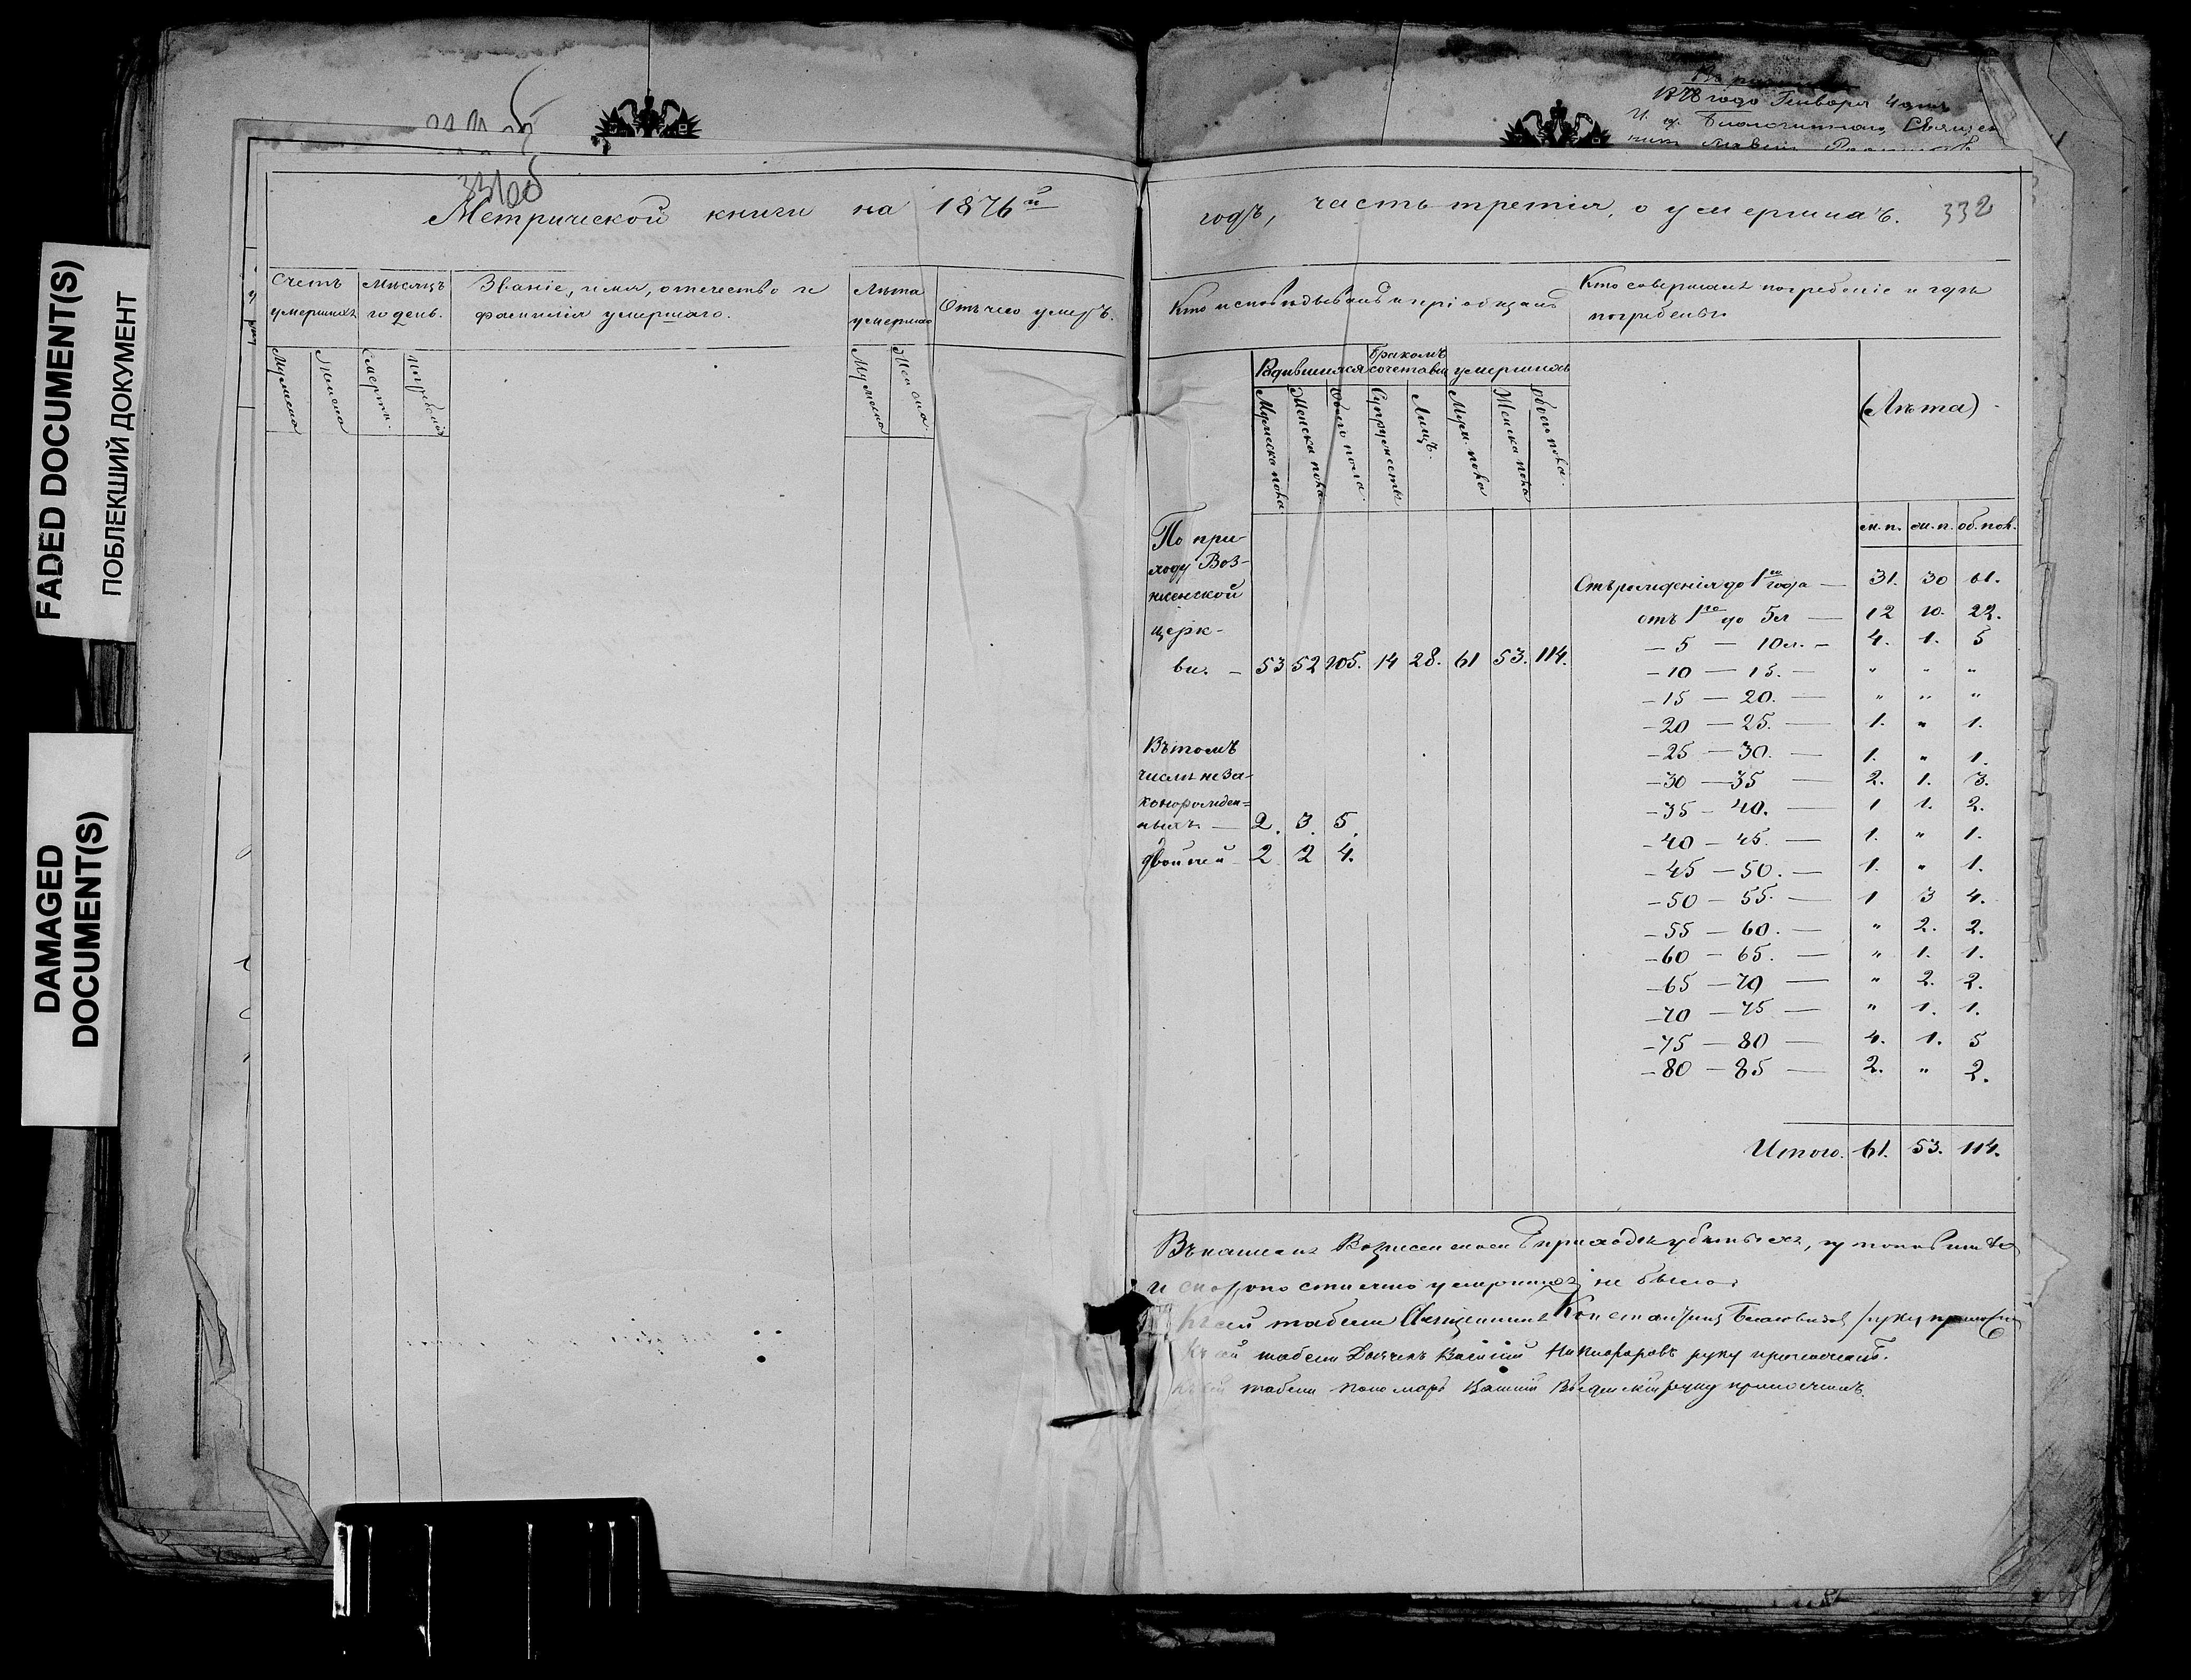 FADED DOCUMENT(S)
ПОБЛЕКШИЙ ДОКУМЕНТ
DAMAGED
DOCUMENT(S)
1878 года Генваря 4 дня
331об
Метрической книги на 1876й
Счетъ умершихъ
Мужеска
Женска
Мѣсяцъ и день.
Смерти.
Погребенія
Званіе, имя, отечество и фамилія умершаго.
Лѣта умершаго
Мужеска
Женска.
Отъ чего умеръ.
годъ, часть третія, о умершихъ. 332
Кто исповѣдывалъ и пріобщалъ
Кто совершалъ погребеніе и гдѣ погребены
Родившихся
Бракомъ сочетавш
умершихъ
Мужеска пола
Женска пола
Обоего пола
Супружествъ
Лицъ.
Муж. пола
Женска пола
обоего пола.
(Лѣта)
м. п. ж. п. об. пол.
По при-
ходу Воз-
несенской
церк-
ви. – 53 52 105. 14 28. 61 53. 114.
Въ томъ
числѣ неза-
конорожден=
ныхъ — 2. 3. 5.
двойней 2 2 4.
Отъ рожденія до 1го года — 31. 30 61.
отъ 1го до 5л — 12 10. 22.
– 5 — 10л. – 4. 1. 5
– 10 — 15. — " " "
– 15 — 20. — " " "
– 20 — 25. — 1. " 1.
– 25 — 30. — 1. " 1.
– 30 — 35 — 2. 1. 3.
– 35 – 40. — 1 1. 2.
– 40 – 45. — 1. " 1.
– 45 – 50. — 1. " 1.
– 50 – 55. — 1 3 4.
– 55 – 60. — " 2. 2.
– 60 – 65. — " 1. 1.
– 65 – 70 — " 2. 2.
– 70 – 75 — " 1. 1.
– 75 – 80 — 4. 1. 5
– 80 – 85 — 2. " 2.
Итого. 61. 53. 114.
и скоропостижно умершихъ не было.
Къ сей табели Священникъ Константинъ руку приложилъ
Къ сей табели Дьячекъ Василій Никифоровъ руку приложилъ.
Къ сей табели пономарь руку приложилъ.